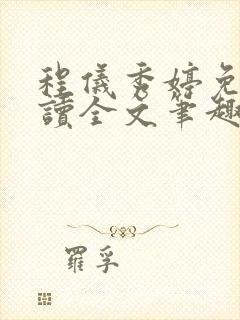 程儀秀婷免
讀全文筆趣
羅孚